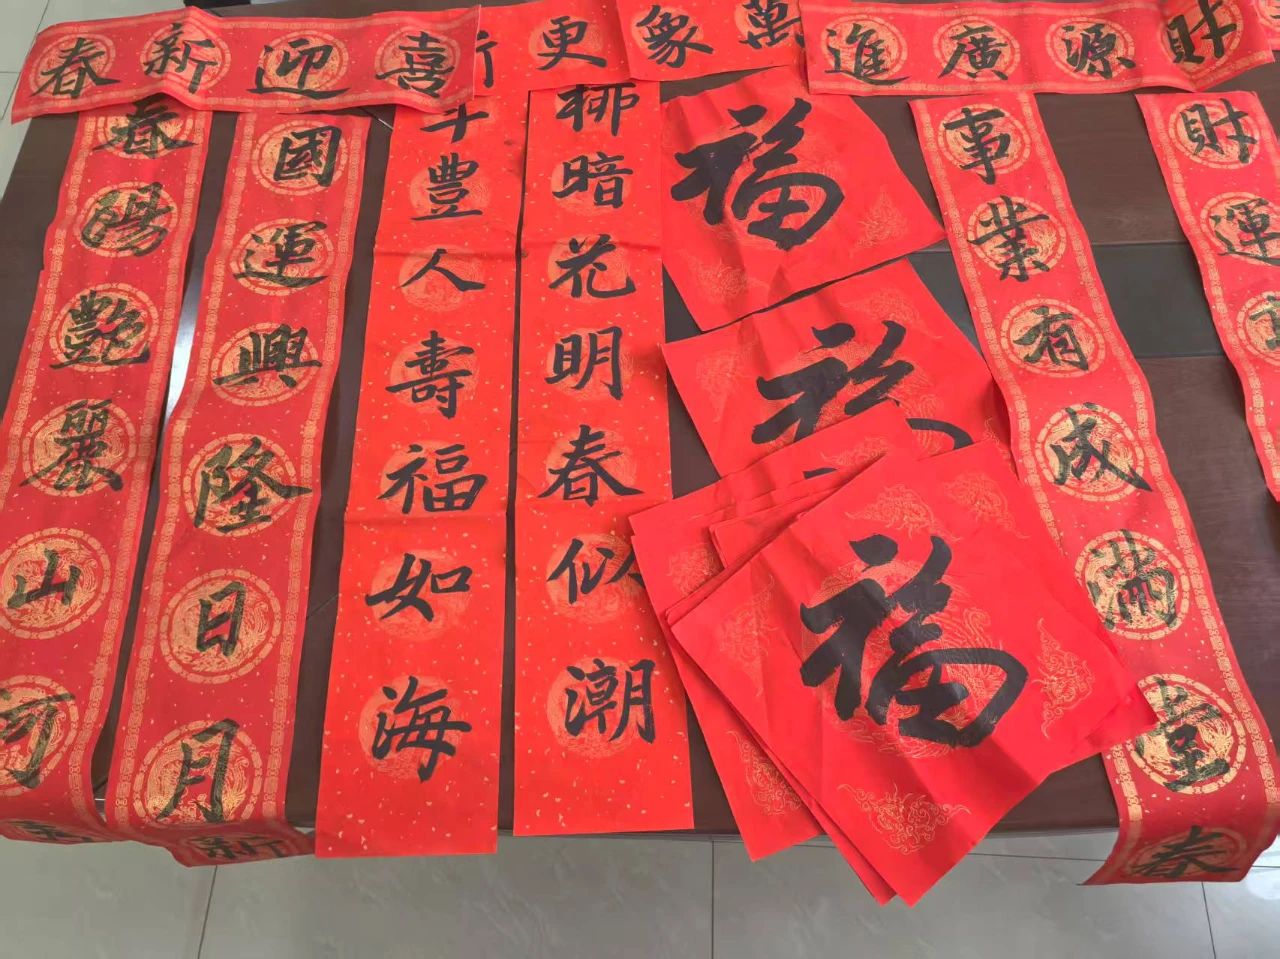 喜迎新春
萬象更新
財源廣進
春陽豔麗山河
國運興隆日月新
年豐人壽福如海
柳暗花明春似潮
福
福
福
事業有成滿堂春
財運